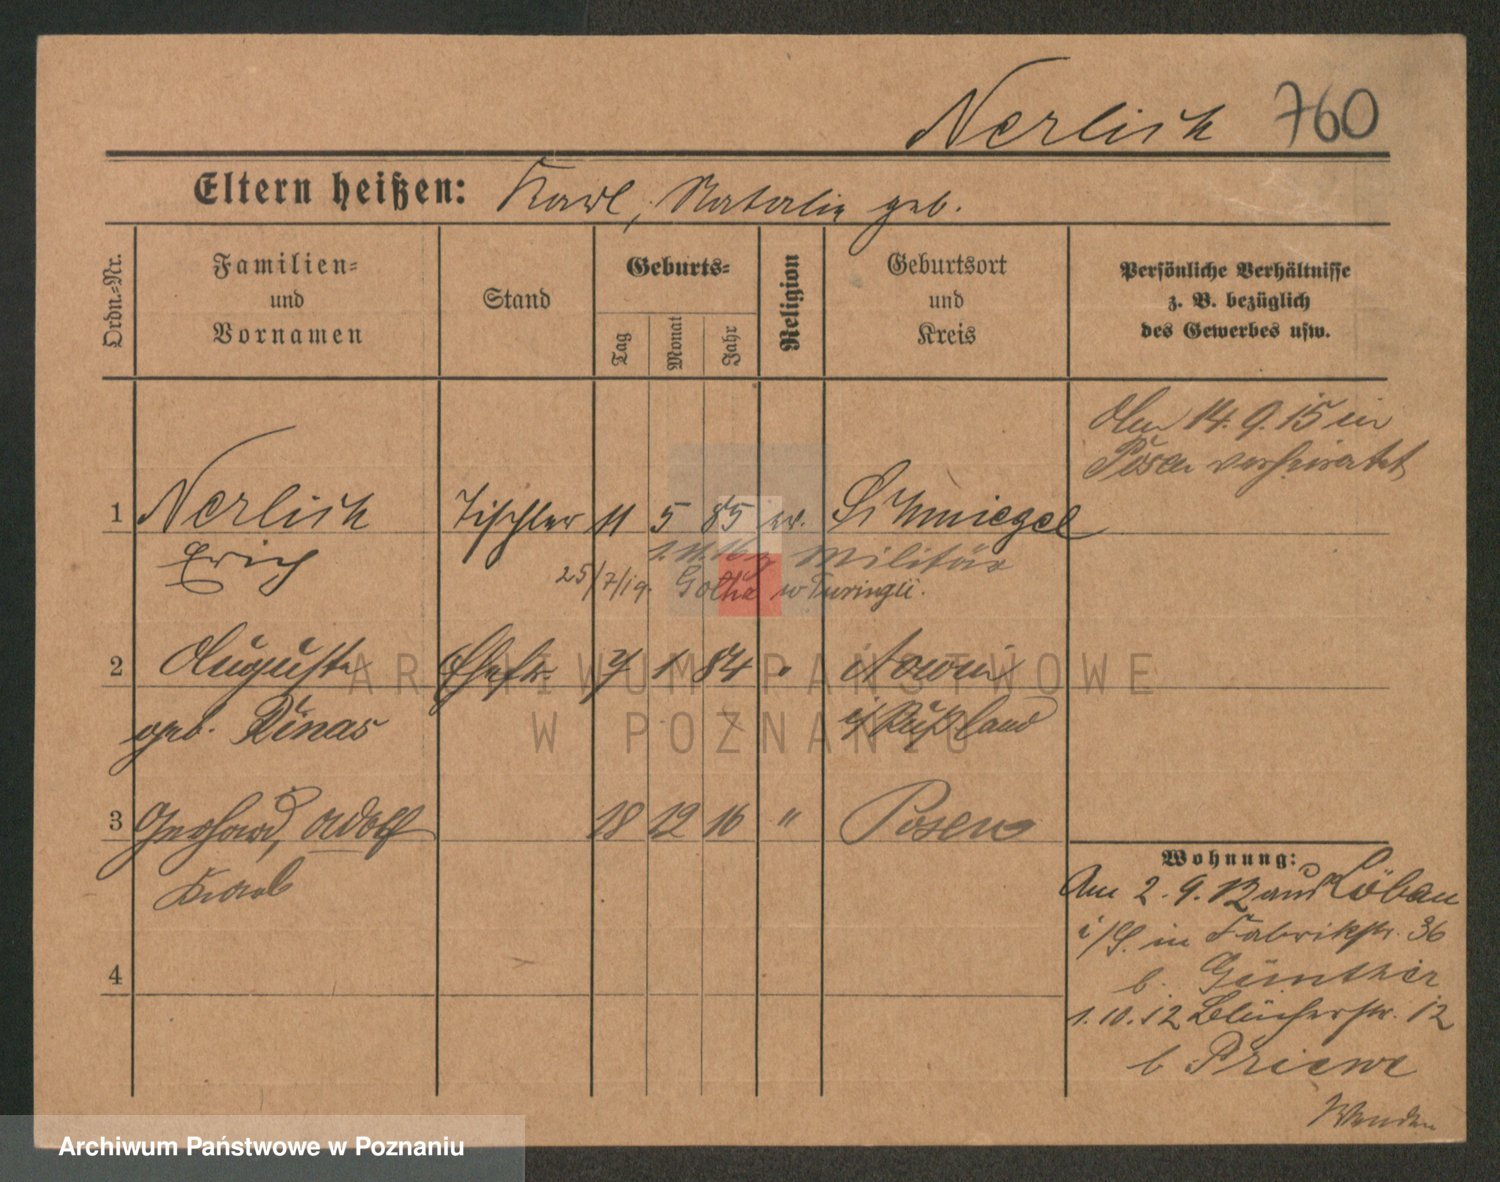 Nerlich 760
Eltern heißen: Karl, Natalie geb.
Ordn.-Nr.
Familien-
und
Vornamen
Stand
Geburts-
Tag
Monat
Jahr
Religion
Geburtsort
und
Kreis
Persönliche Verhältnisse
z. B. bezüglich
des Gewerbes usw.
Am 14.9.15 in
Posen verheiratet
1 Nerlich Tischler 11 5 85 ev. Schmiegel
Erich 1.11.16 z Militär
25/7/19. Gotha w Turingii.
2 Auguste Ehefr. 7 1 84 "
geb. Rinas i/Rußland
3 Gerhard, Adolf 18 12 16 " Posen
Karl
4
Wohnung:
Am 2.9.12 aus Löbau
i/S. in Fabrikstr. 36
b. Günther
1.10.12 Blücherstr. 12
b Priewe
Wenden
ARCHIWUM PAŃSTWOWE
W POZNANIU
Archiwum Państwowe w Poznaniu